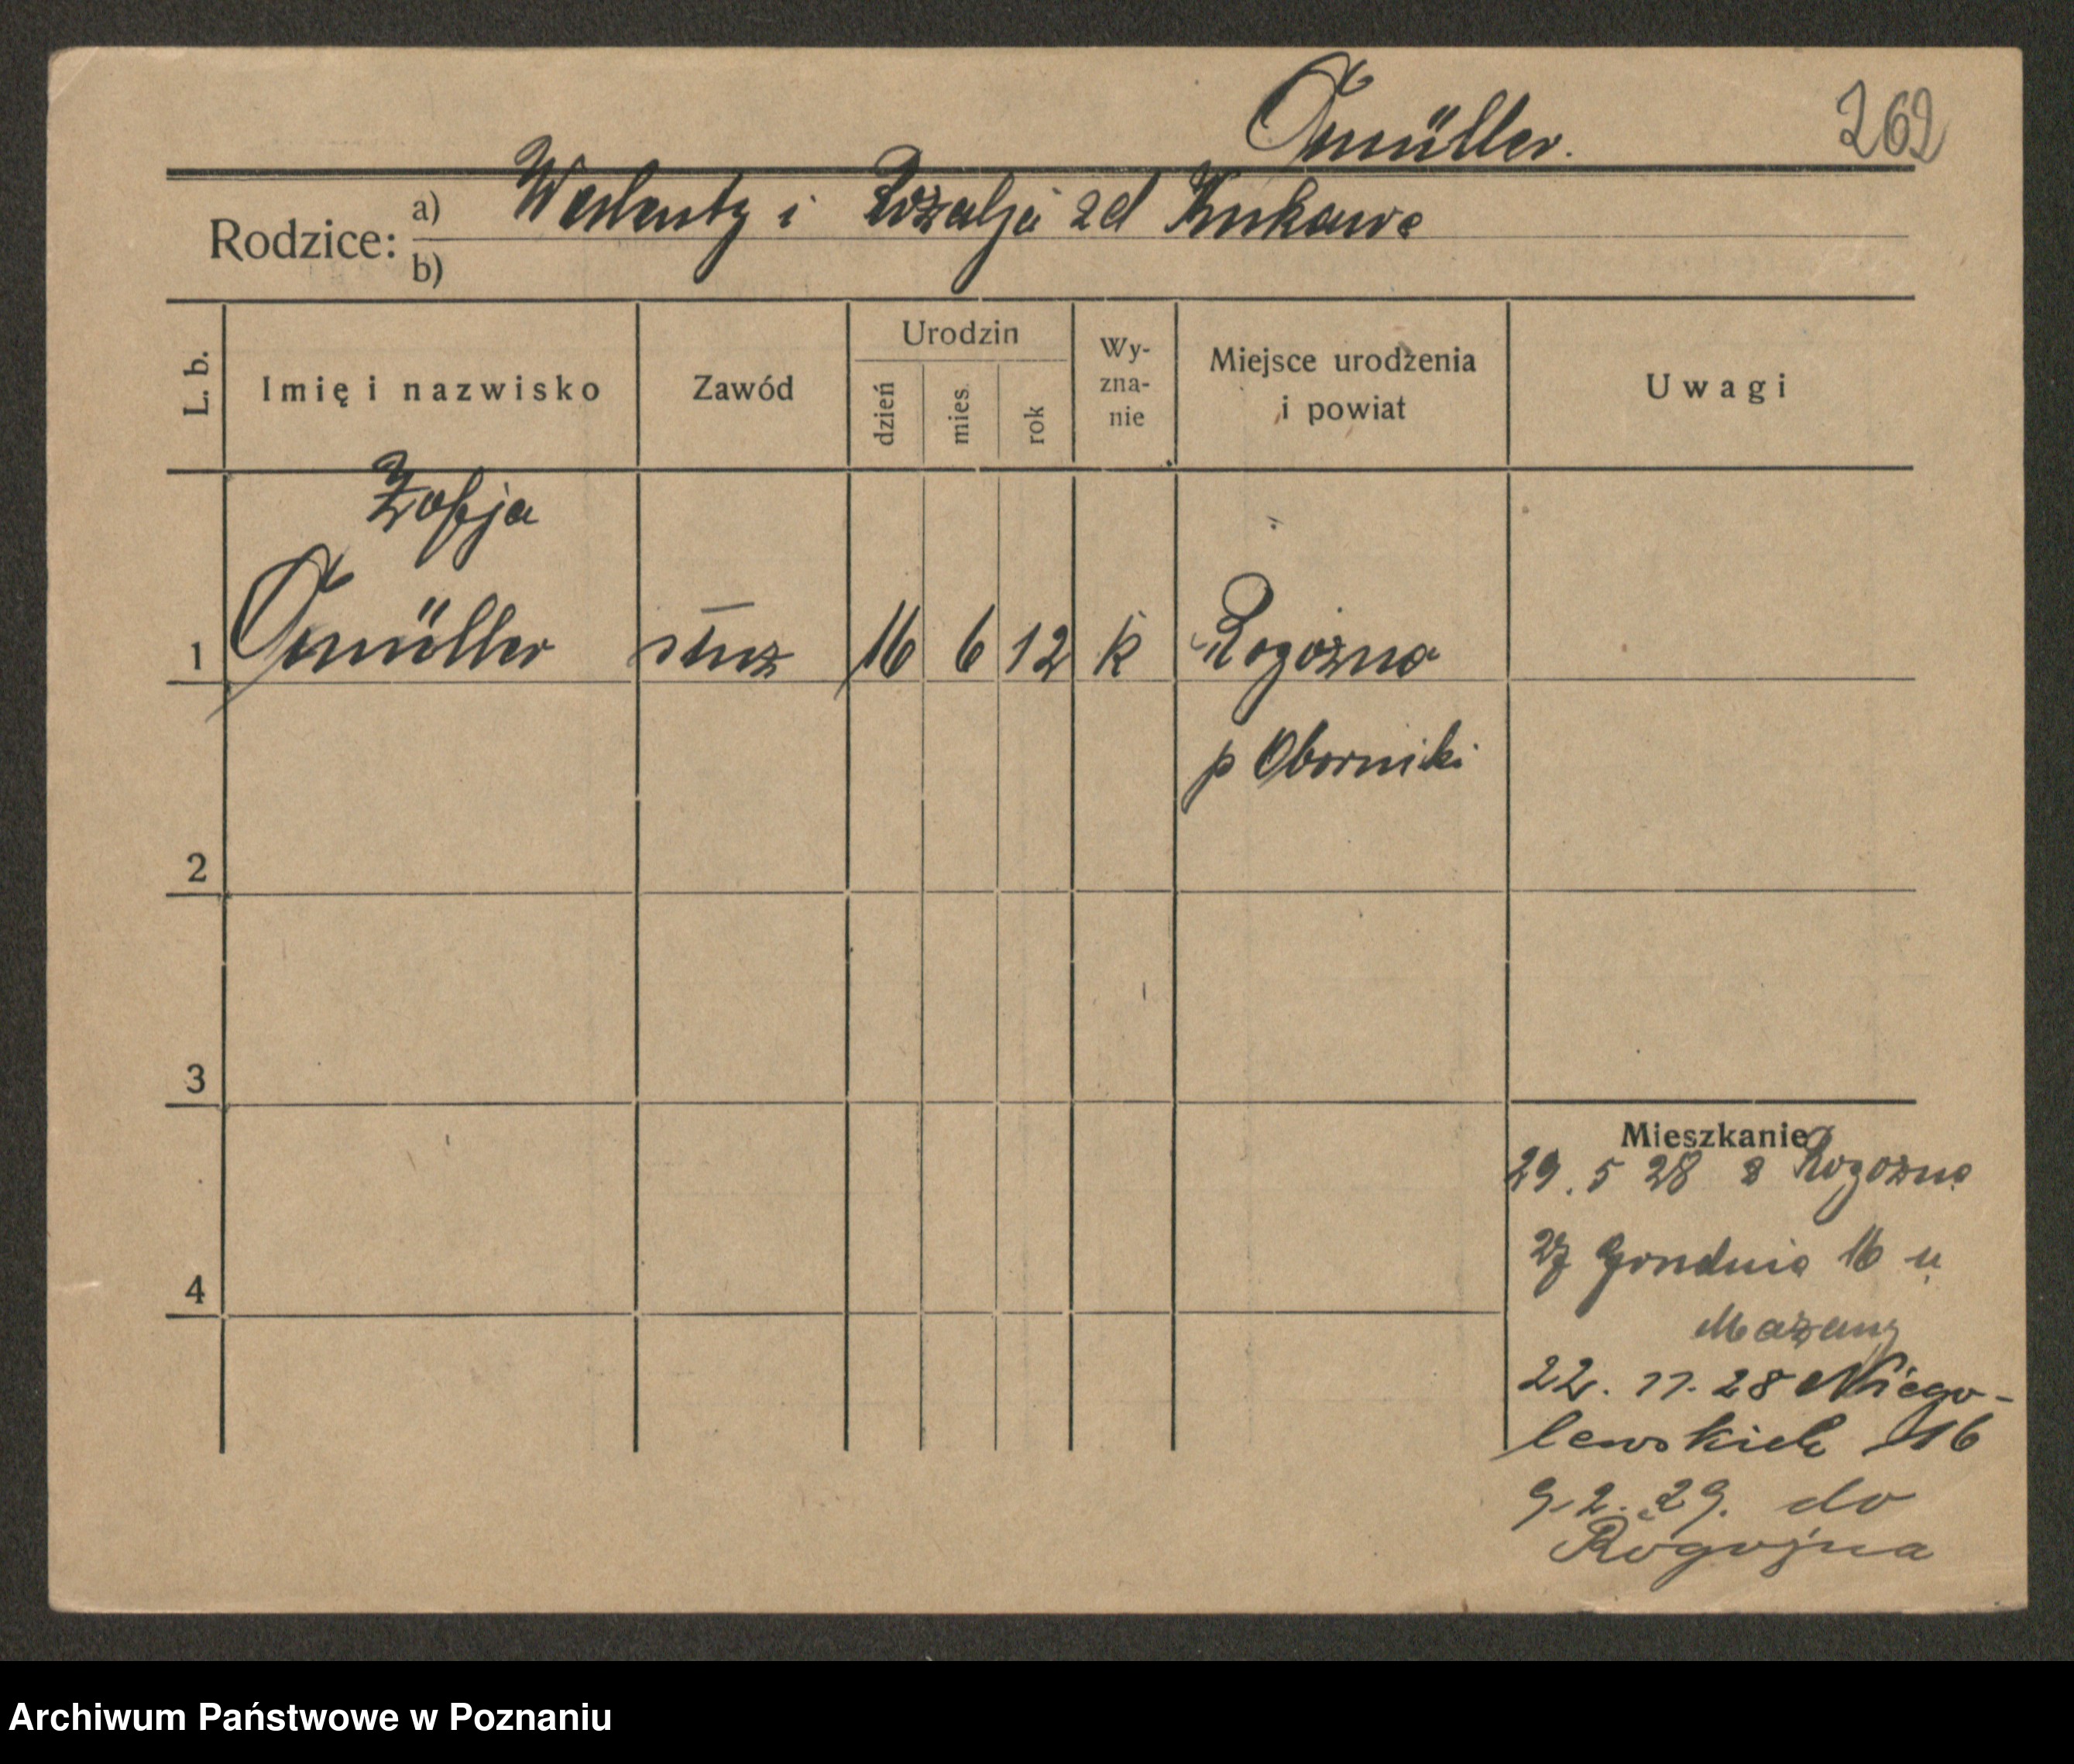 Omüller.
262
Rodzice: a) Walenty i Rozalja zd Kukawa
b)
L. b.
Imię i nazwisko
Zawód
Urodzin
dzień
mies.
rok
Wy-
zna-
nie
Miejsce urodzenia
i powiat
Uwagi
Zofja
1 Omüller służ 16 6 12 k Rogoźna
p Oborniki
2
3
4
Mieszkanie
29. 5 28 z Rogoźna
27 Grudnia 16 u
22. 11. 28 Niego-
lewskich 16
9. 2. 29. do
Rogoźna
Archiwum Państwowe w Poznaniu